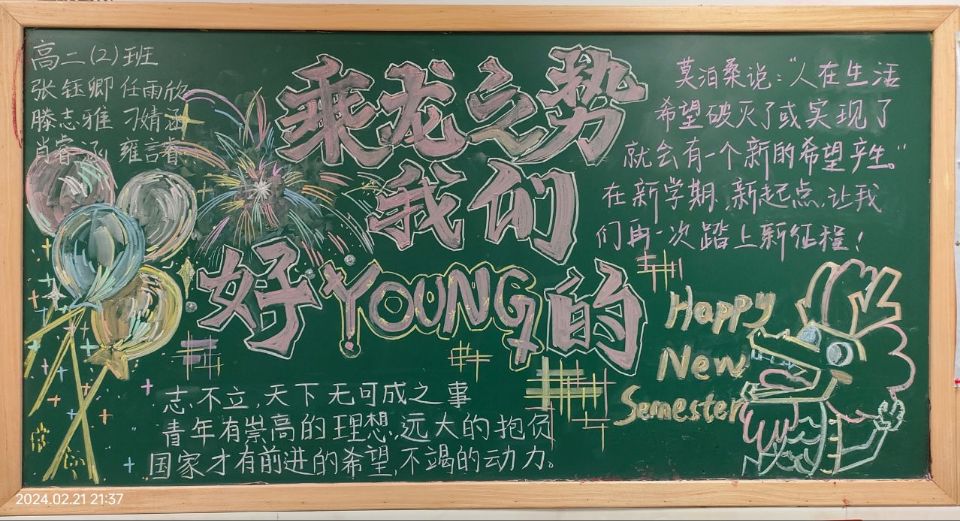 高二(2)班
张钰卿 任雨欣
滕志雅 刁婧涵
肖睿涵 雍言春
乘龙之势
我们
好YOUNG的
莫泊桑说:"人在生活
希望破灭了或实现了
就会有一个新的希望产生。"
在新学期,新起点,让我
们再一次踏上新征程!
Happy
New
Semester
志不立,天下无可成之事
青年有崇高的理想,远大的抱负
国家才有前进的希望,不竭的动力。
2024.02.21 21:37